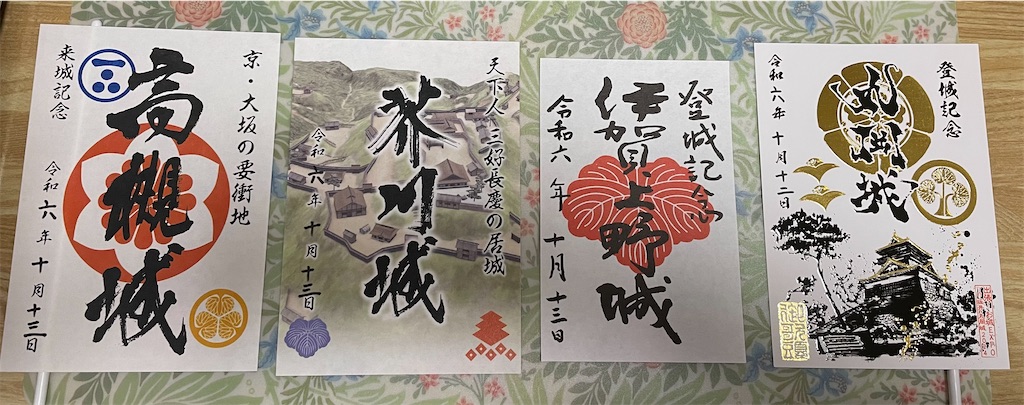 京・大坂の要衝地
高槻城
来城記念
令和六年 十月十三日
天下人・三好長慶の居城
芥川城
令和六年 十月十三日
登城記念
伊賀上野城
令和六年 十月十三日
登城記念
丸岡城
令和六年 十月十二日